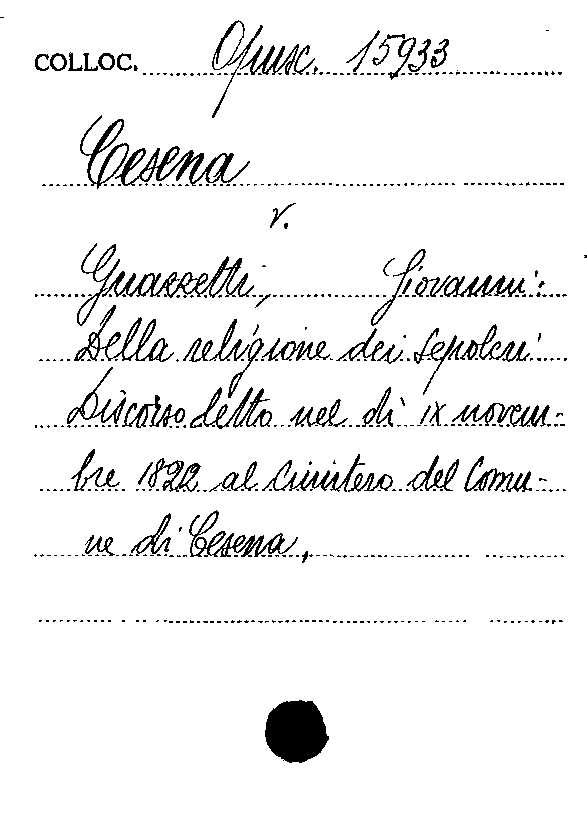 COLLOC. Opusc. 15933
Cesena
v.
Guazzetti, Giovanni:
Della religione dei sepolcri
Discorso detto nel dì IX novem-
bre 1822 al Cimitero del Comu-
ne di Cesena,